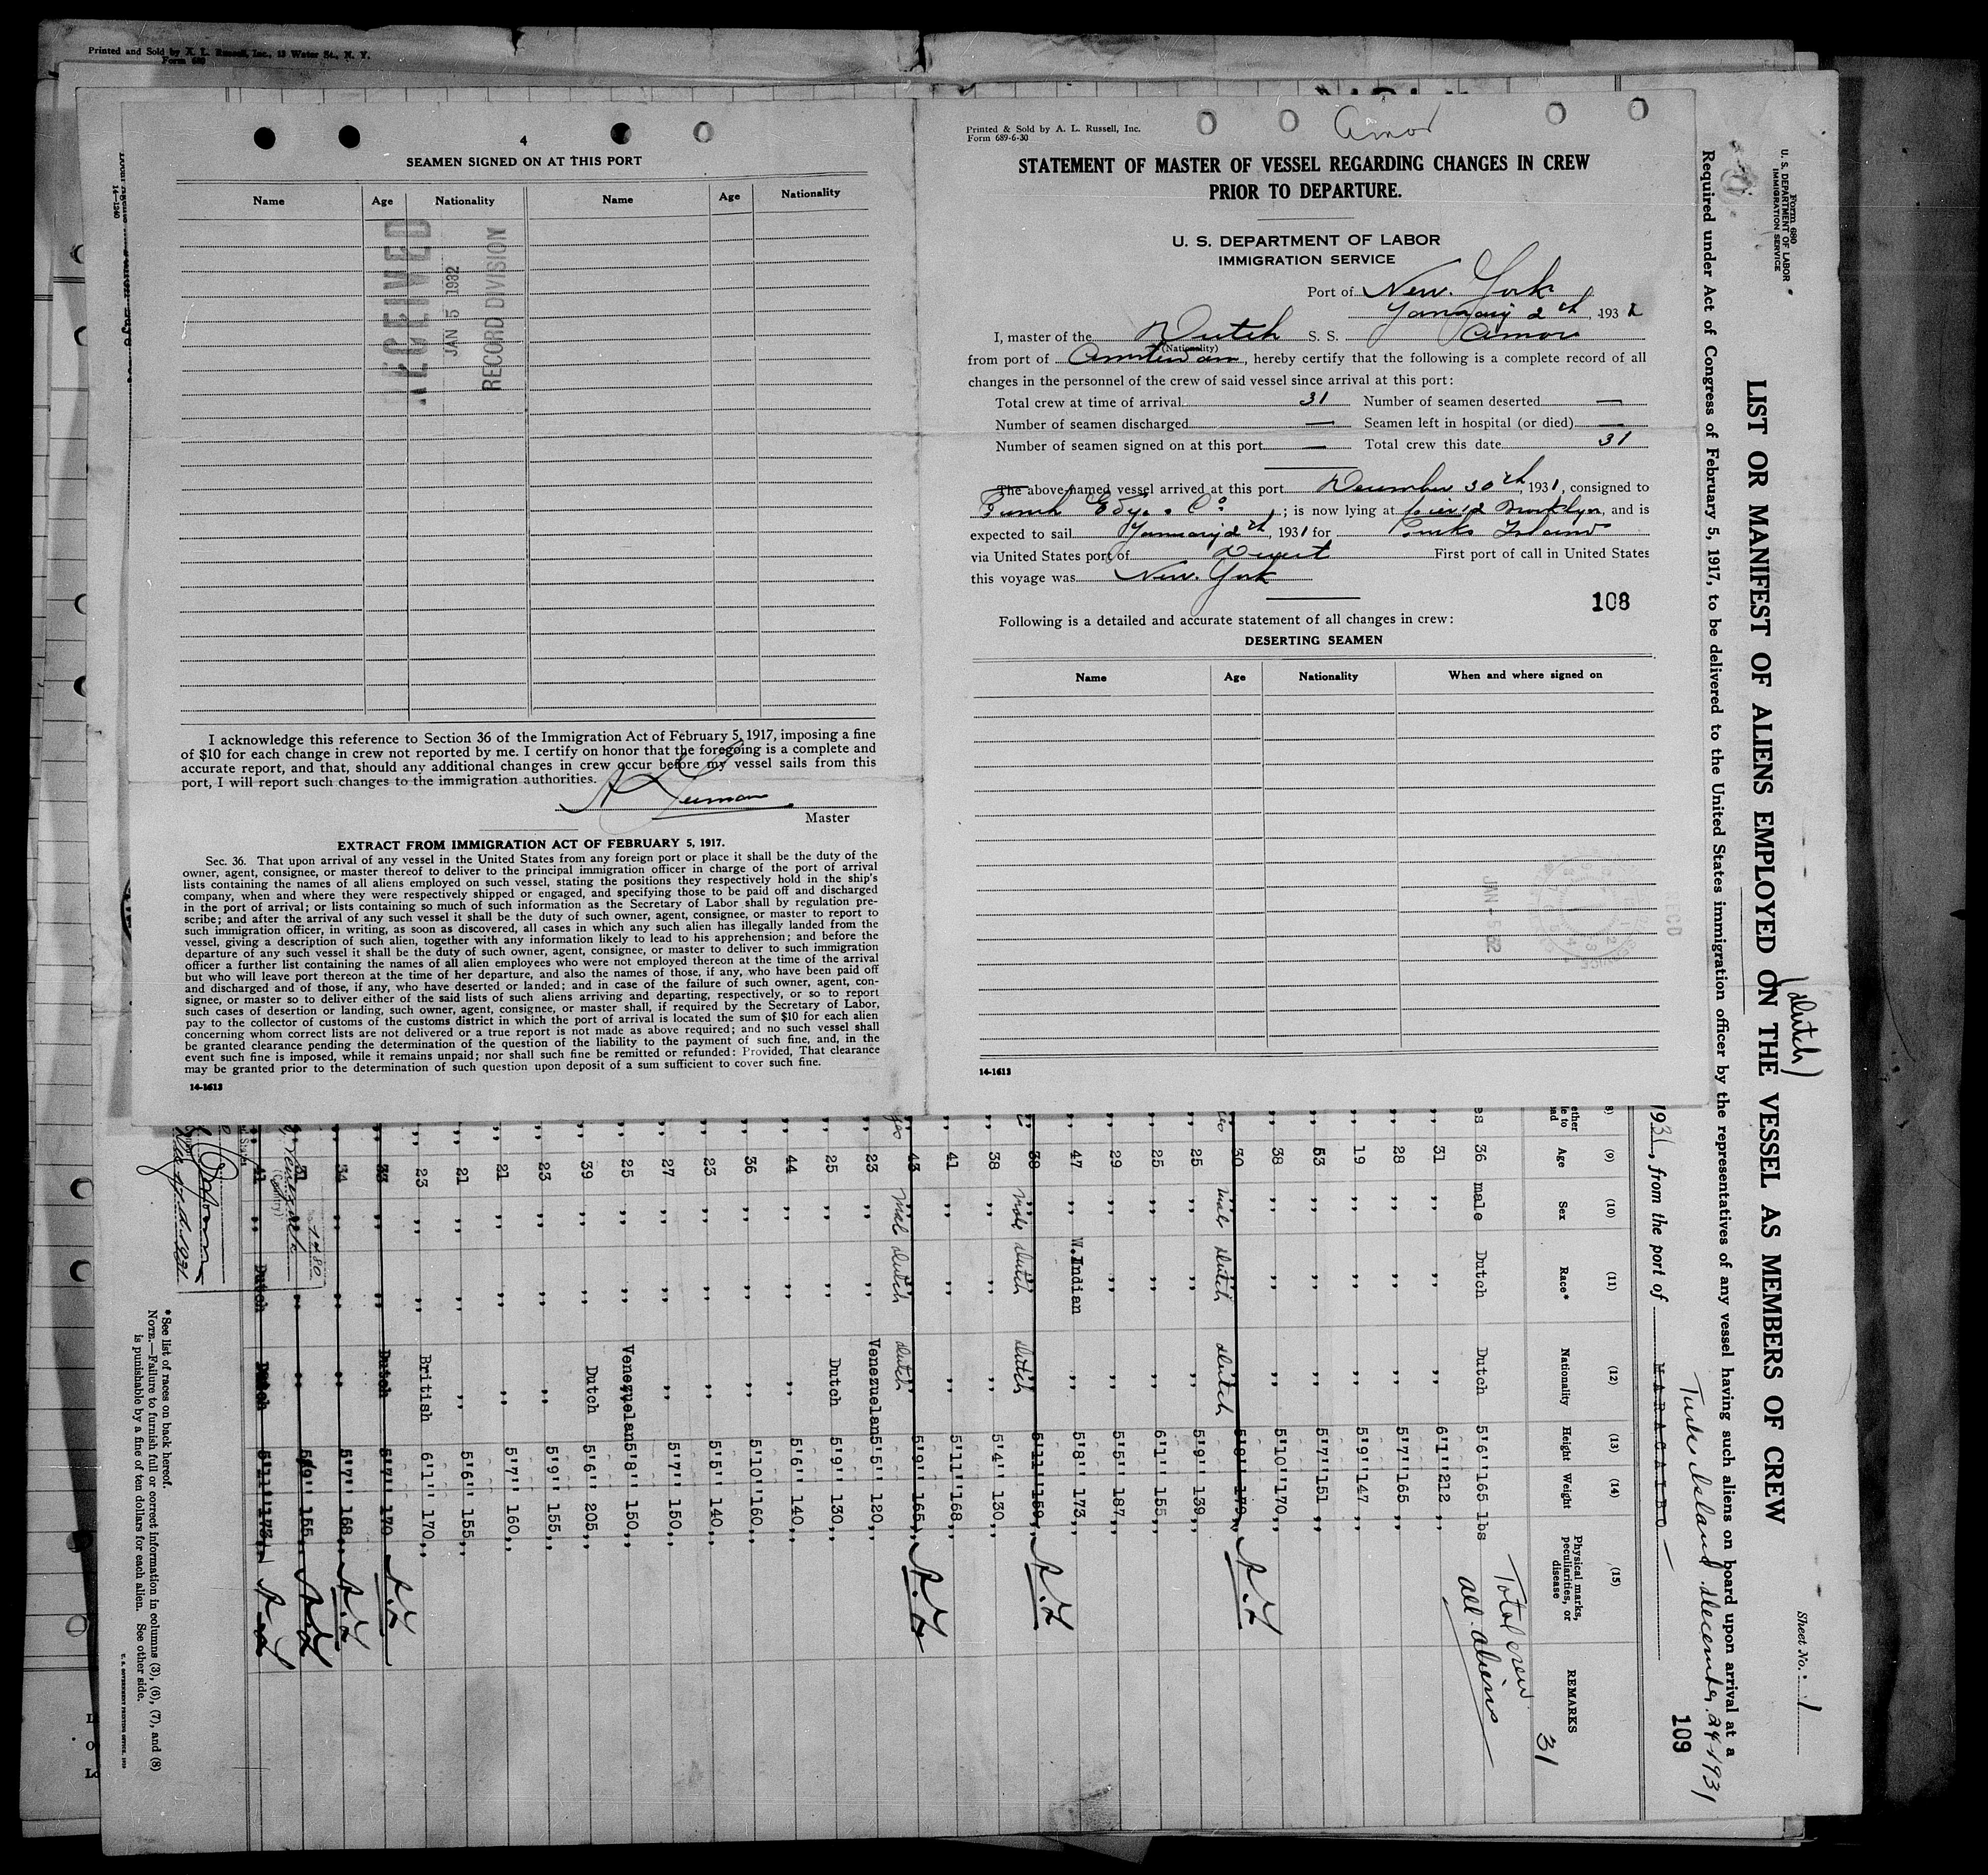 Printed and Sold by A. L. Russell, Inc., 13 Water St., N. Y.
Form 689
4
SEAMEN SIGNED ON AT THIS PORT
Name Age Nationality Name Age Nationality
RECEIVED
JAN 5 1932
RECORD DIVISION
I acknowledge this reference to Section 36 of the Immigration Act of February 5, 1917, imposing a fine
of $10 for each change in crew not reported by me. I certify on honor that the foregoing is a complete and
accurate report, and that, should any additional changes in crew occur before my vessel sails from this
port, I will report such changes to the immigration authorities.
Master
EXTRACT FROM IMMIGRATION ACT OF FEBRUARY 5, 1917.
Sec. 36. That upon arrival of any vessel in the United States from any foreign port or place it shall be the duty of the
owner, agent, consignee, or master thereof to deliver to the principal immigration officer in charge of the port of arrival
lists containing the names of all aliens employed on such vessel, stating the positions they respectively hold in the ship's
company, when and where they were respectively shipped or engaged, and specifying those to be paid off and discharged
in the port of arrival; or lists containing so much of such information as the Secretary of Labor shall by regulation pre-
scribe; and after the arrival of any such vessel it shall be the duty of such owner, agent, consignee, or master to report to
such immigration officer, in writing, as soon as discovered, all cases in which any such alien has illegally landed from the
vessel, giving a description of such alien, together with any information likely to lead to his apprehension; and before the
departure of any such vessel it shall be the duty of such owner, agent, consignee, or master to deliver to such immigration
officer a further list containing the names of all alien employees who were not employed thereon at the time of the arrival
but who will leave port thereon at the time of her departure, and also the names of those, if any, who have been paid off
and discharged and of those, if any, who have deserted or landed; and in case of the failure of such owner, agent, con-
signee, or master so to deliver either of the said lists of such aliens arriving and departing, respectively, or so to report
such cases of desertion or landing, such owner, agent, consignee, or master shall, if required by the Secretary of Labor,
pay to the collector of customs of the customs district in which the port of arrival is located the sum of $10 for each alien
concerning whom correct lists are not delivered or a true report is not made as above required; and no such vessel shall
be granted clearance pending the determination of the question of the liability to the payment of such fine, and, in the
event such fine is imposed, while it remains unpaid; nor shall such fine be remitted or refunded: Provided, That clearance
may be granted prior to the determination of such question upon deposit of a sum sufficient to cover such fine.
14-1613
Printed & Sold by A. L. Russell, Inc.
Form 689-6-30
Amor
STATEMENT OF MASTER OF VESSEL REGARDING CHANGES IN CREW
PRIOR TO DEPARTURE.
U. S. DEPARTMENT OF LABOR
IMMIGRATION SERVICE
Port of New York
January 2th, 1932
I, master of the Dutch S. S. Amor
(Nationality)
from port of Amsterdam, hereby certify that the following is a complete record of all
changes in the personnel of the crew of said vessel since arrival at this port:
Total crew at time of arrival 31 Number of seamen deserted —
Number of seamen discharged — Seamen left in hospital (or died) —
Number of seamen signed on at this port — Total crew this date 31
The above-named vessel arrived at this port December 30th, 1931, consigned to
Funch Edye & Co; is now lying at pier 12 Brooklyn, and is
expected to sail January 2th, 1931 for Turks Island
via United States port of Direct First port of call in United States
this voyage was New York
108
Following is a detailed and accurate statement of all changes in crew:
DESERTING SEAMEN
Name Age Nationality When and where signed on
JAN - 5 32
REC'D
14-1613
Form 680
U. S. DEPARTMENT OF LABOR
IMMIGRATION SERVICE
Sheet No. 1
LIST OR MANIFEST OF ALIENS EMPLOYED ON THE VESSEL AS MEMBERS OF CREW
(Dutch)
Required under Act of Congress of February 5, 1917, to be delivered to the United States immigration officer by the representatives of any vessel having such aliens on board upon arrival at a
Turks Island December 24-1931
1931, from the port of MARACAIBO
109
(9) (10) (11) (12) (13) (14) (15)
Age Sex Race* Nationality Height Weight Physical marks, peculiarities, or disease REMARKS
Total crew 31
all aliens
36 male Dutch Dutch 5'6'' 165 lbs
31 ,, ,, ,, 6'1'' 212 ,,
28 ,, ,, ,, 5'7'' 165 ,,
19 ,, ,, ,, 5'9'' 147 ,,
53 ,, ,, ,, 5'7'' 151 ,,
38 ,, ,, ,, 5'10'' 170 ,,
30 male Dutch Dutch 5'9'' 179 ,,
25 ,, ,, ,, 5'9'' 139 ,,
25 ,, ,, ,, 6'1'' 155 ,,
29 ,, ,, ,, 5'5'' 187 ,,
47 ,, W.Indian ,, 5'8'' 173 ,,
38 male Dutch Dutch 5'11'' 159 ,,
38 ,, ,, ,, 5'4'' 130 ,,
41 ,, ,, ,, 5'11'' 168 ,,
43 male Dutch Dutch 5'9'' 165 ,,
23 ,, ,, Venezuelan 5'5'' 120 ,,
25 ,, ,, Dutch 5'9'' 130 ,,
44 ,, ,, ,, 5'6'' 140 ,,
36 ,, ,, ,, 5'10'' 160 ,,
23 ,, ,, ,, 5'5'' 140 ,,
27 ,, ,, ,, 5'7'' 150 ,,
25 ,, ,, Venezuelan 5'8'' 150 ,,
39 ,, ,, Dutch 5'6'' 205 ,,
23 ,, ,, ,, 5'9'' 155 ,,
21 ,, ,, ,, 5'7'' 160 ,,
21 ,, ,, ,, 5'6'' 155 ,,
23 ,, ,, British 6'1'' 170 ,,
33 ,, ,, Dutch 5'7'' 170
34 ,, ,, ,, 5'7'' 168 ,,
31 ,, ,, ,, 5'9'' 155 ,,
41 ,, Dutch Dutch 5'11'' 173 ,,
Venezuela
(Country)
No. 1480
* See list of races on back hereof.
NOTE.—Failure to furnish full or correct information in columns (3), (6), (7), and (8)
is punishable by a fine of ten dollars for each alien. See other side.
U. S. GOVERNMENT PRINTING OFFICE
14-1240